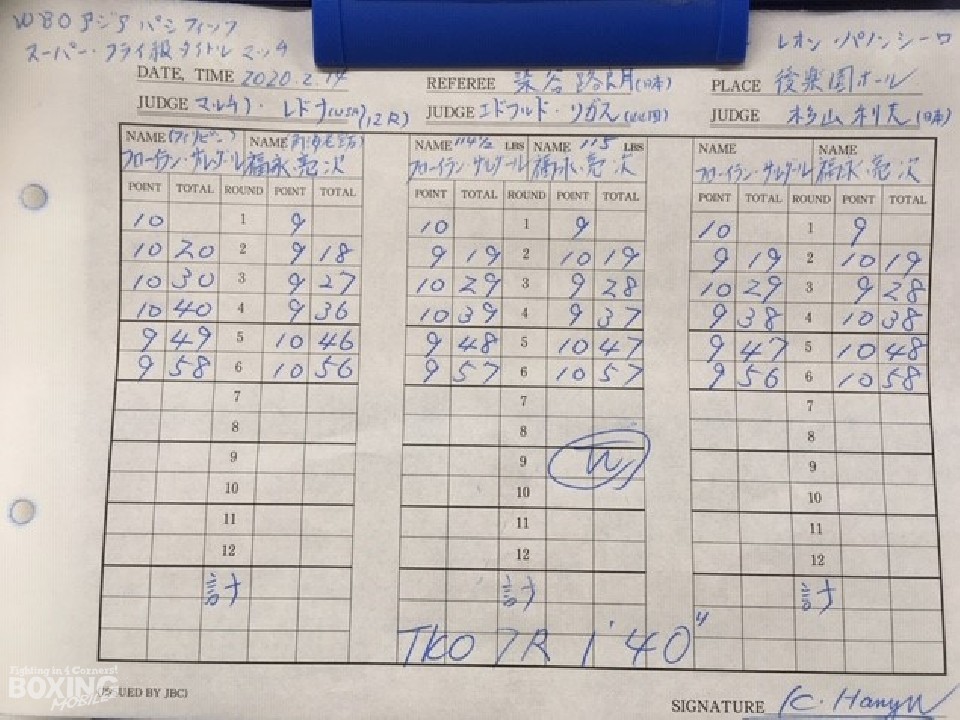 WBO アジア パシフィック
スーパー・フライ級 タイトル マッチ
レオン・パノンシーロ
DATE, TIME 2020.2.14 REFEREE 染谷路朗(日本) PLACE 後楽園ホール
JUDGE (USA) (12R) JUDGE エドワルド・リガス JUDGE 杉山利夫(日本)
NAME (フィリピン) NAME NAME 114½ LBS NAME 115 LBS NAME NAME
フローイラン・サルダール 福永亮次 フローイラン・サルダール 福永・亮次 フローイラン・サルダール 福永・亮次
POINT TOTAL ROUND POINT TOTAL POINT TOTAL ROUND POINT TOTAL POINT TOTAL ROUND POINT TOTAL
10 1 9 10 1 9 10 1 9
10 20 2 9 18 9 19 2 10 19 9 19 2 10 19
10 30 3 9 27 10 29 3 9 28 10 29 3 9 28
10 40 4 9 36 10 39 4 9 37 9 38 4 10 38
9 49 5 10 46 9 48 5 10 47 9 47 5 10 48
9 58 6 10 56 9 57 6 10 57 9 56 6 10 58
7 7 7
8 8 8
9 9 W 9
10 10 10
11 11 11
12 12 12
計 計 計
TKO 7R 1'40"
Fighting in 4 Corners!
BOXING
MOBILE
ISSUED BY JBC) SIGNATURE